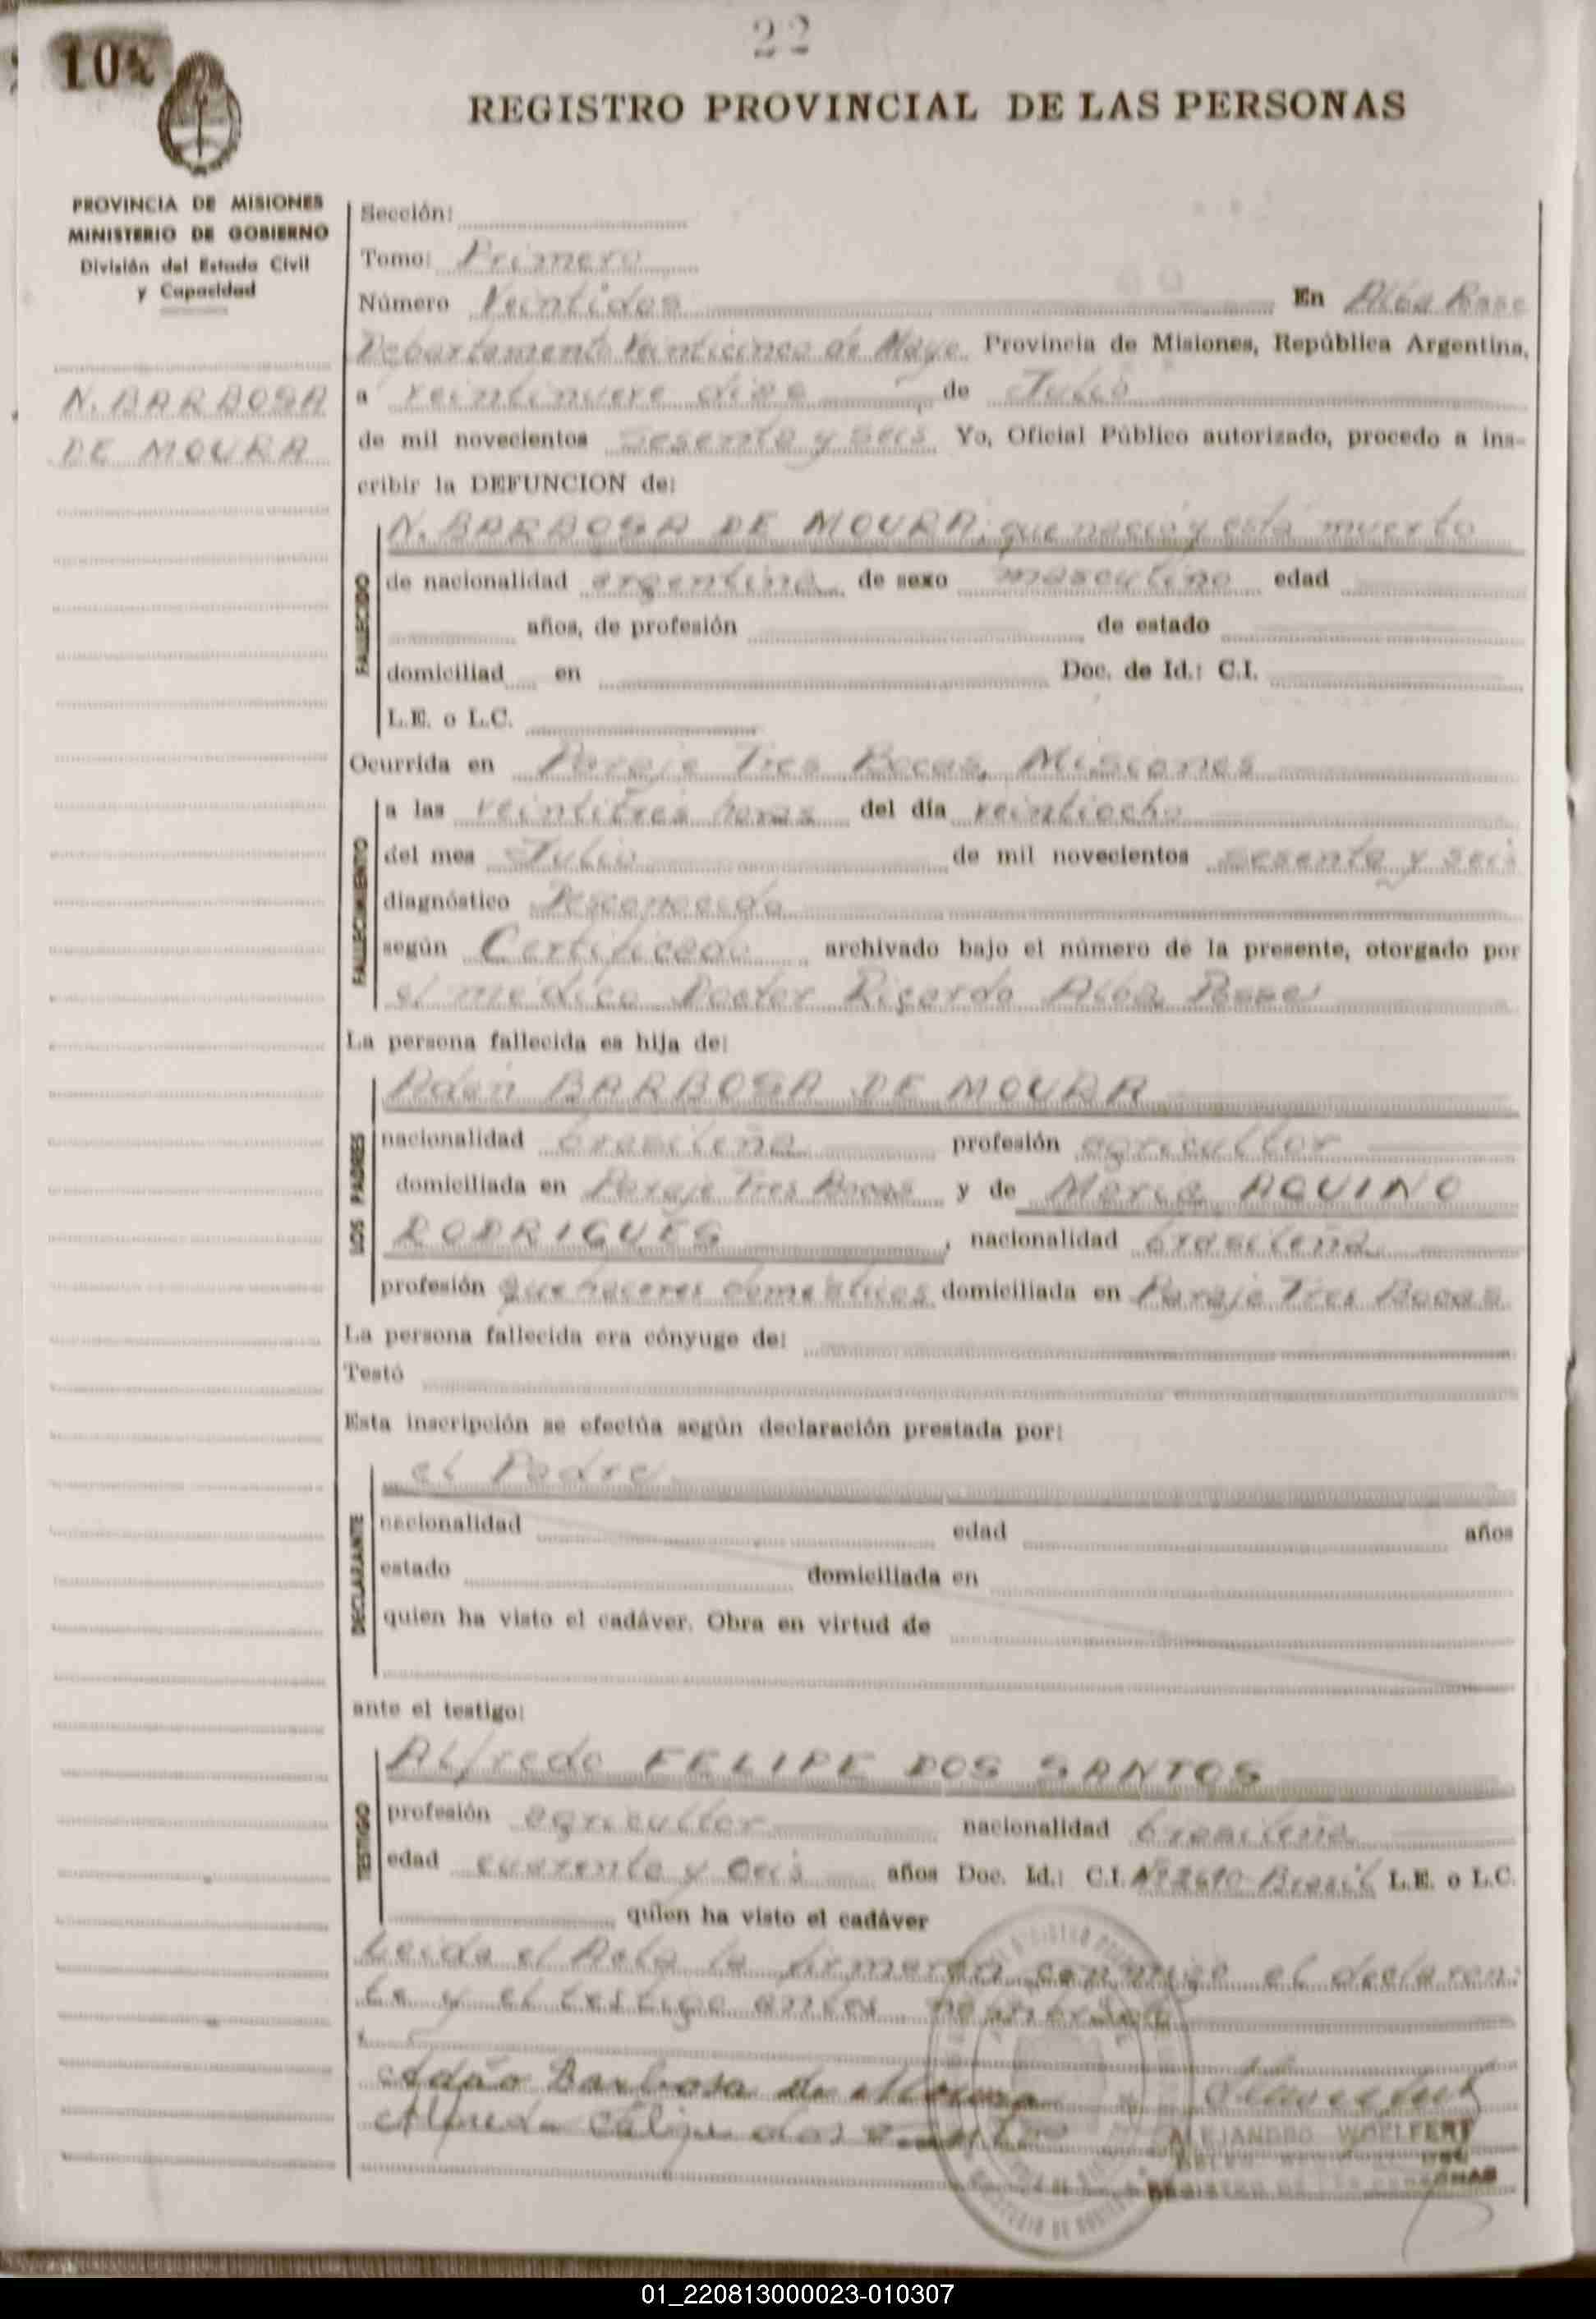 22
104
REGISTRO PROVINCIAL DE LAS PERSONAS
PROVINCIA DE MISIONES
MINISTERIO DE GOBIERNO
División del Estado Civil
y Capacidad
N. BARBOSA
DE MOURA
Sección:
Tomo: Primero
Número Veintidos En Alba Posse
Departamento Veinticinco de Mayo Provincia de Misiones, República Argentina,
a veintinueve dias de Julio
de mil novecientos sesenta y seis Yo, Oficial Público autorizado, procedo a ins-
cribir la DEFUNCION de:
FALLECIDO
N. BARBOSA DE MOURA, que nació y está muerto
de nacionalidad argentina de sexo masculino edad
años, de profesión de estado
domiciliad en Doc. de Id.: C.I.
L.E. o L.C.
Ocurrida en Paraje Tres Bocas, Misiones
FALLECIMIENTO
a las veintitres horas del día veintiocho
del mes Julio de mil novecientos sesenta y seis
diagnóstico Desconocido
según Certificado archivado bajo el número de la presente, otorgado por
el médico Doctor Ricardo Alba Posse
La persona fallecida es hija de:
LOS PADRES
Adán BARBOSA DE MOURA
nacionalidad brasileña profesión agricultor
domiciliada en Paraje Tres Bocas y de Maria AQUINO
RODRIGUES, nacionalidad brasileña
profesión quehaceres domésticos domiciliada en Paraje Tres Bocas
La persona fallecida era cónyuge de:
Testó
Esta inscripción se efectúa según declaración prestada por:
DECLARANTE
el Padre
nacionalidad edad años
estado domiciliada en
quien ha visto el cadáver. Obra en virtud de
ante el testigo:
TESTIGO
Alfredo FELIPE DOS SANTOS
profesión agricultor nacionalidad brasileña
edad cuarenta y seis años Doc. Id.: C.I. Nº 2610 Brasil L.E. o L.C.
quien ha visto el cadáver
Leida el Acta la firmaron conmigo el declaran-
te y el testigo antes
Adão Barbosa de Moura
Alfredo Felipe dos Santos
ALEJANDRO WOELFERT
REGISTRO DE LAS PERSONAS
01_220813000023-010307